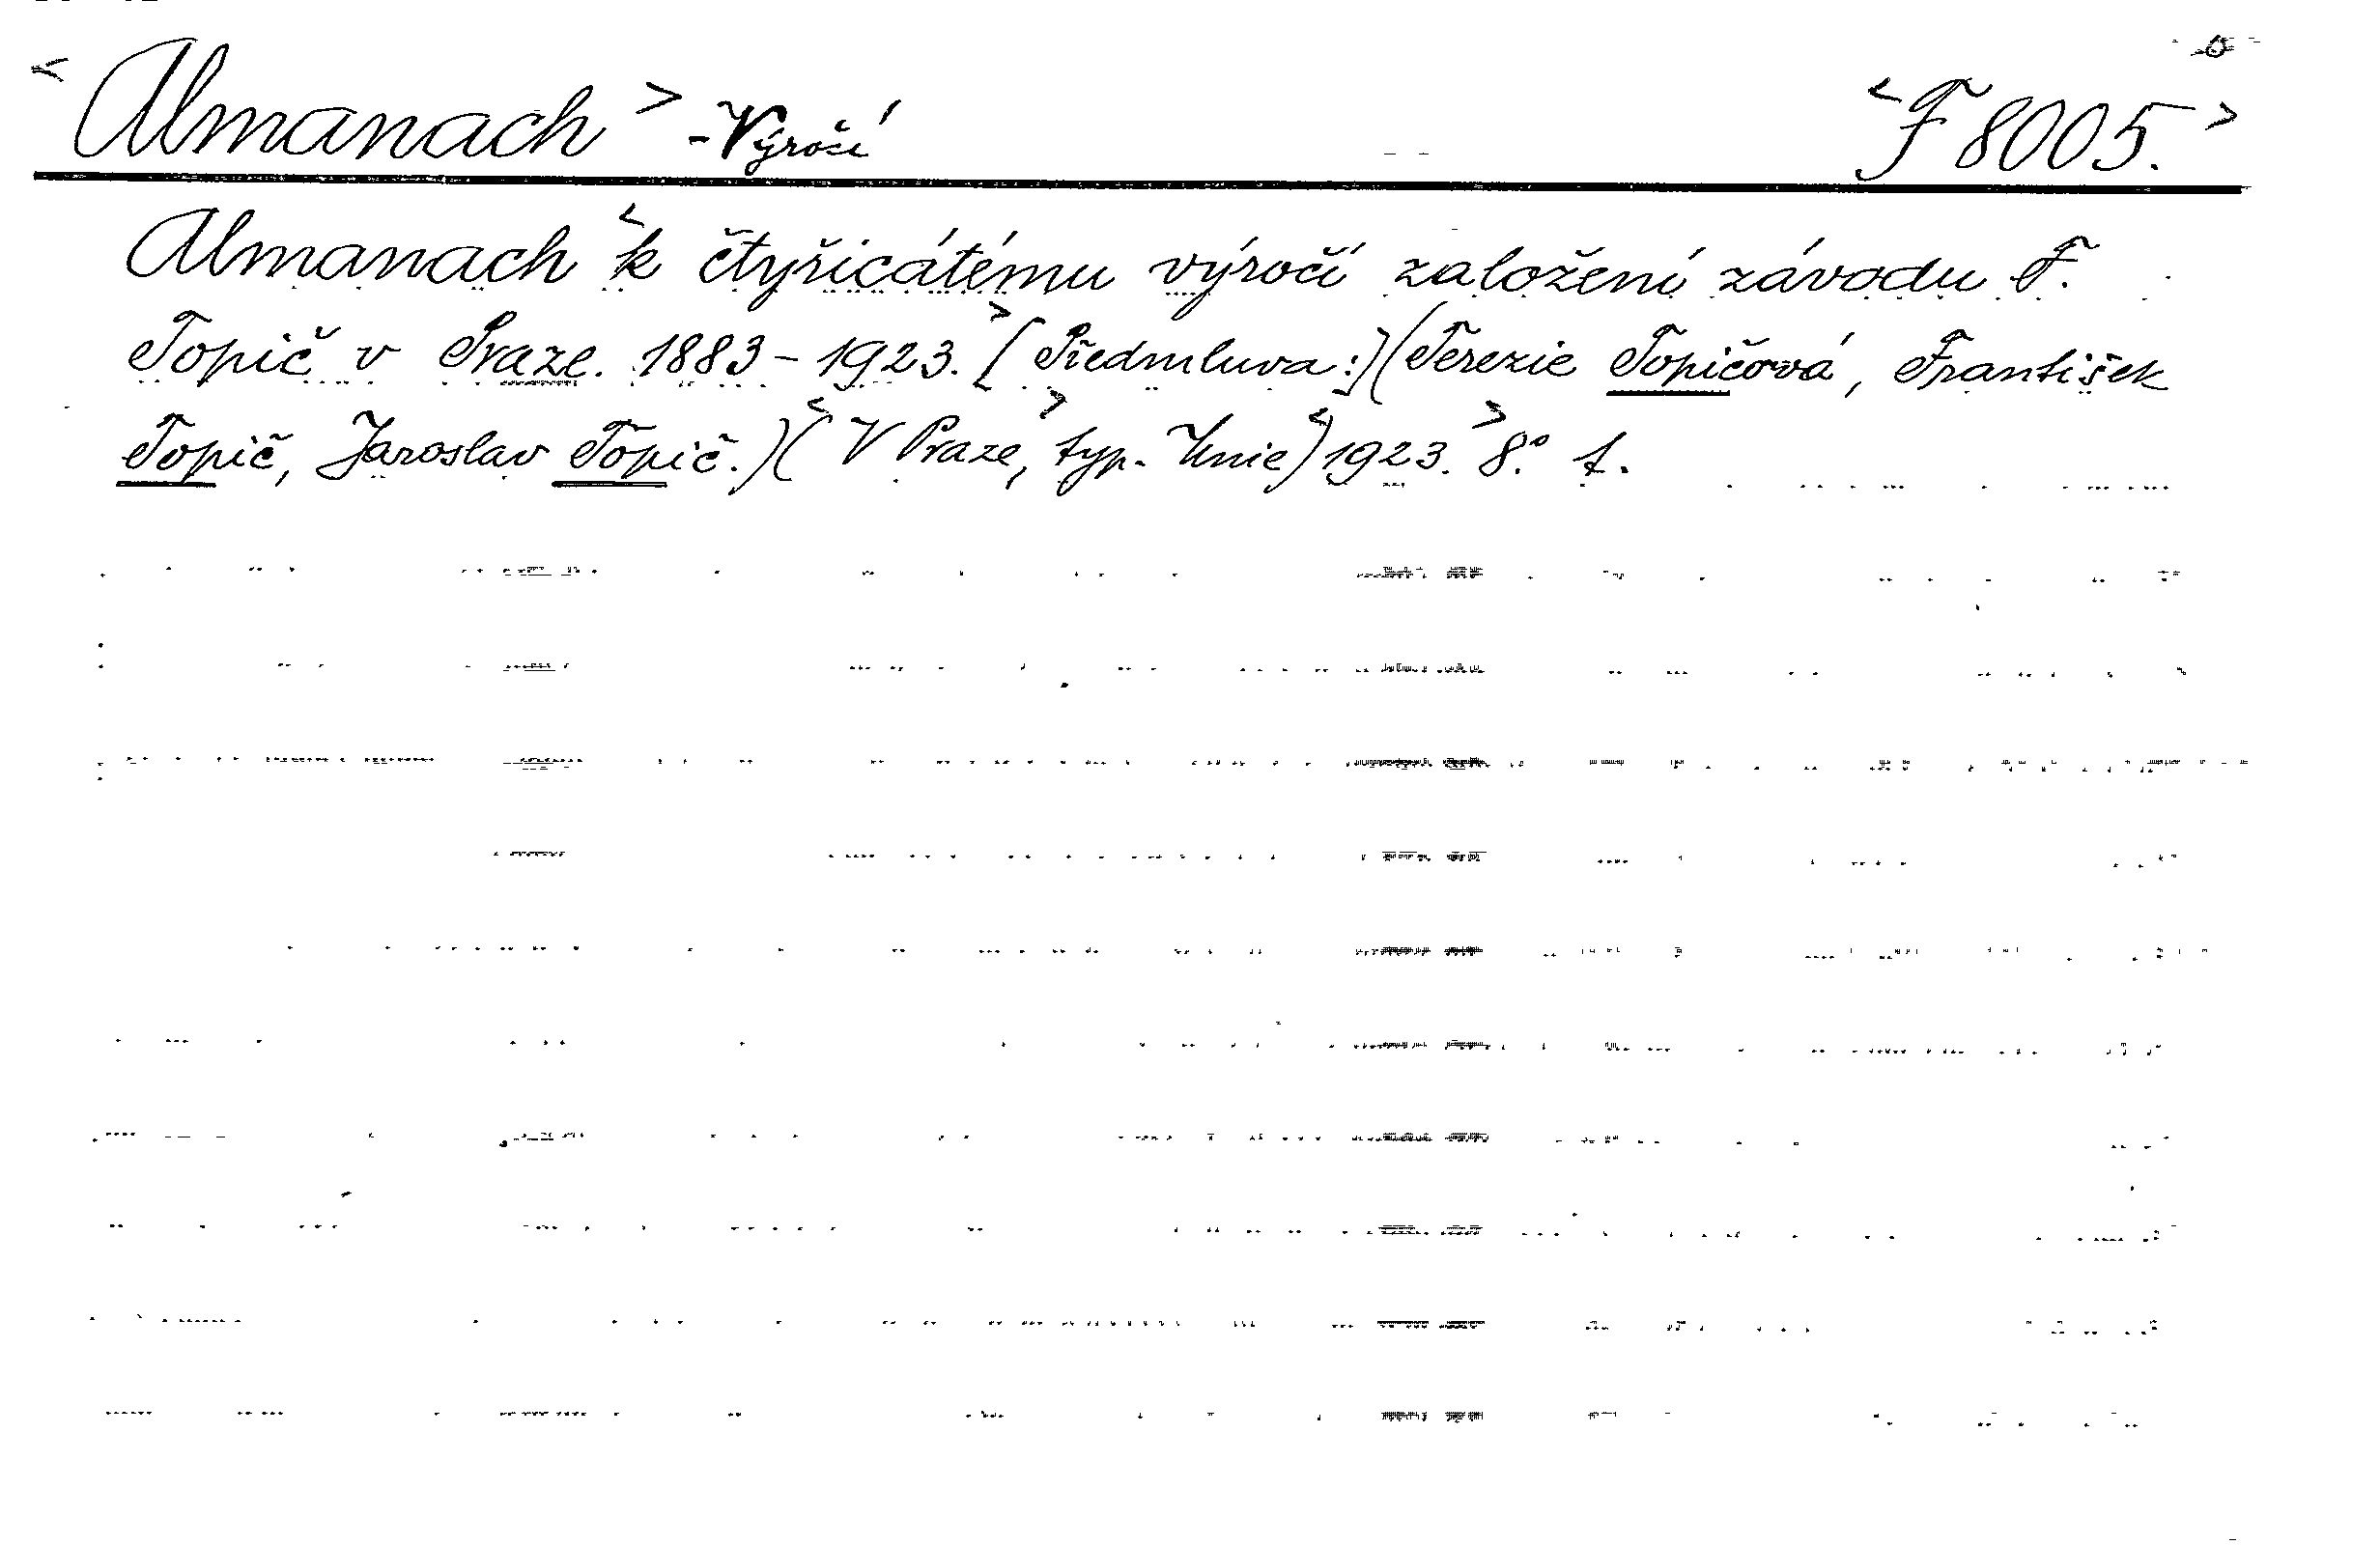 <Almanach> - Výročí <F 8005.>
Almanach <k čtyřicátému výročí založení závodu F.
Topič v Praze. 1883-1923.> [Předmluva:] (Terezie Topičová, František
Topič, Jaroslav Topič.) (<V Praze,> typ. Unie) <1923.> 8.°